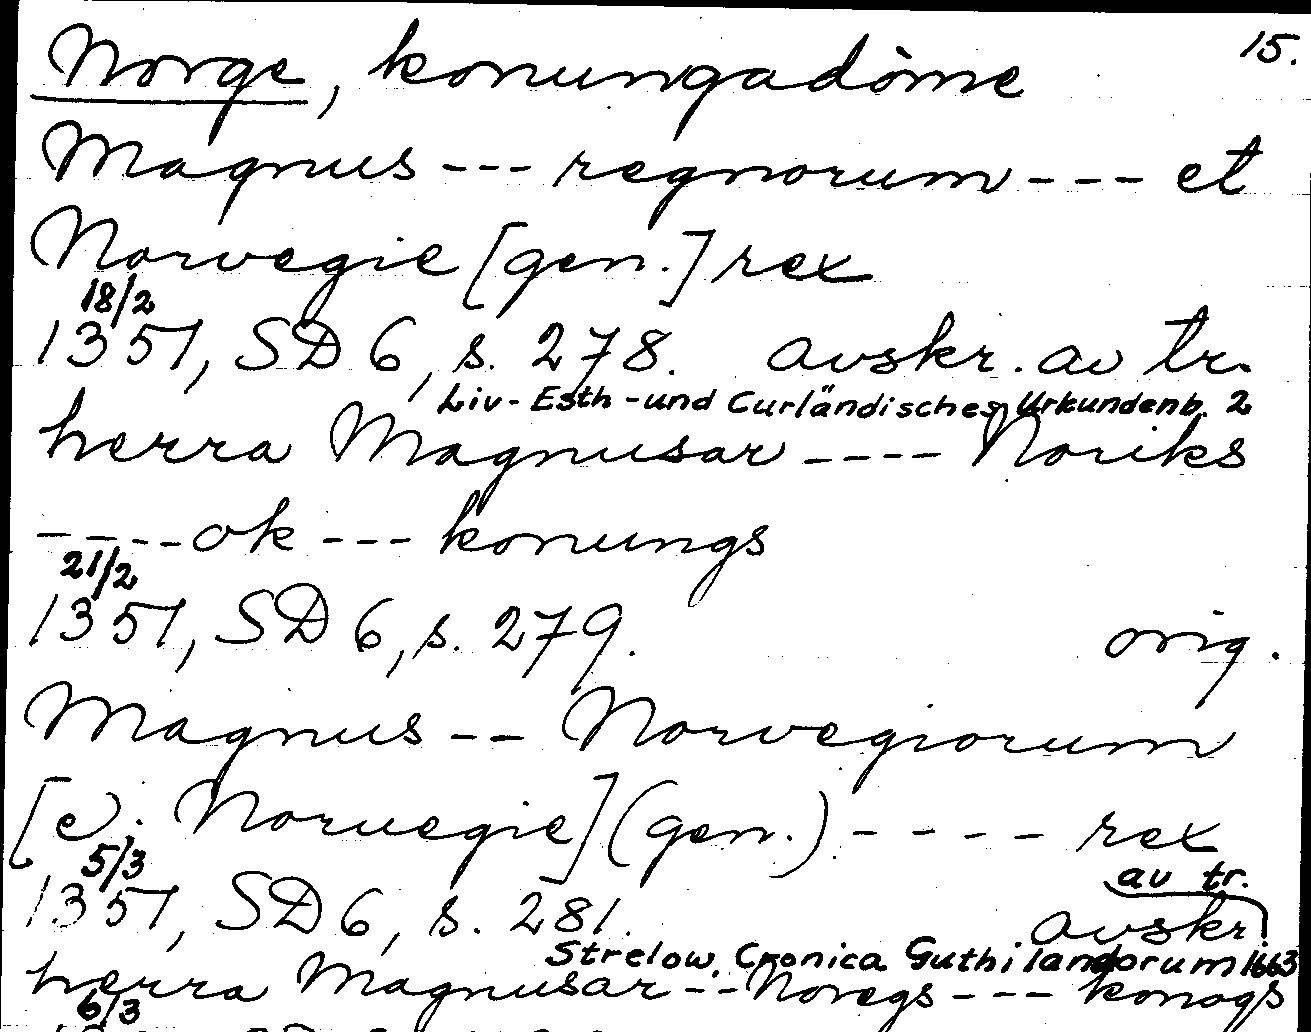 15.
Norge, konungadöme
Magnus --- regnorum --- et
Norvegie [gen.] rex
18/2
1351, SD 6, s. 278. avskr. av tr.
Liv- Esth -und Curländisches Urkundenb. 2
herra Magnusar ---- Noriks
---- ok --- konungs
21/2
1351, SD 6, s. 279. orig.
Magnus -- Norvegiorum
[e. Norvegie] (gen.) ---- rex
5/3
av tr.
1351, SD 6, s. 281. avskr.
Strelow, Cronica Guthilandorum 1663
herra Magnusar -- Noregs --- konogs
6/3